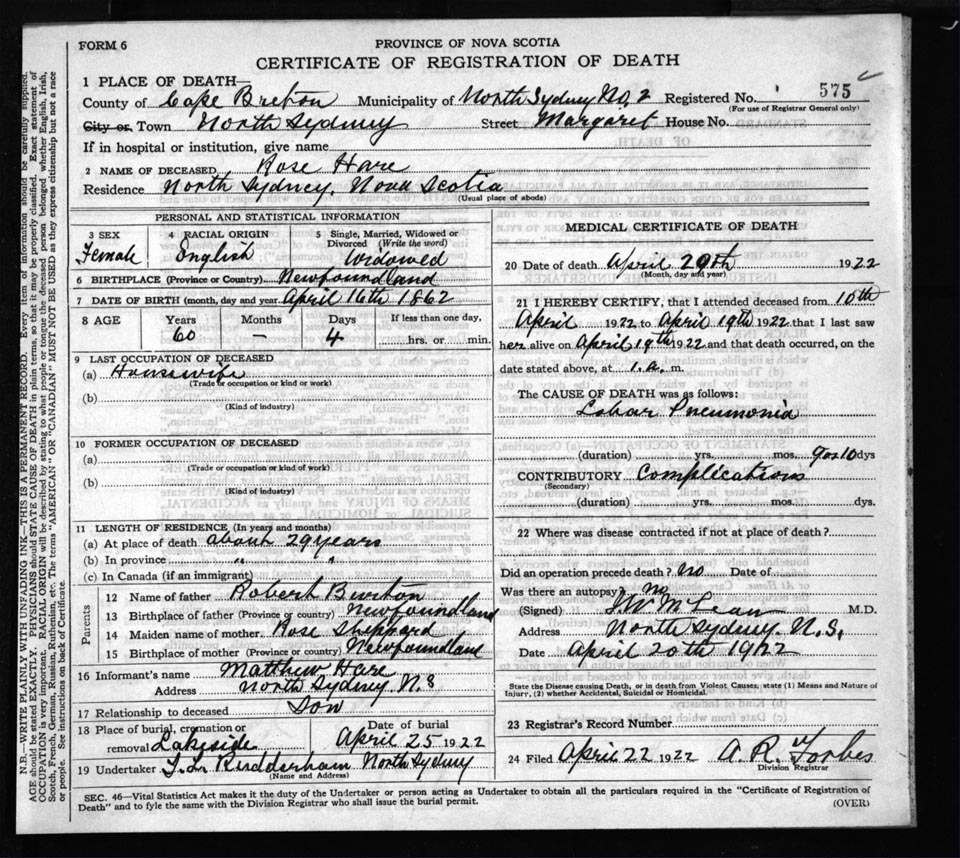 FORM 6
PROVINCE OF NOVA SCOTIA
CERTIFICATE OF REGISTRATION OF DEATH
1 PLACE OF DEATH—
County of Cape Breton Municipality of North Sydney No. 2 Registered No. 575
(For use of Registrar General only)
City or Town North Sydney Street Margaret House No.
If in hospital or institution, give name
2 NAME OF DECEASED Rose Hare
Residence North Sydney, Nova Scotia
(Usual place of abode)
PERSONAL AND STATISTICAL INFORMATION
3 SEX Female
4 RACIAL ORIGIN English
5 Single, Married, Widowed or Divorced (Write the word) Widowed
6 BIRTHPLACE (Province or Country) Newfoundland
7 DATE OF BIRTH (month, day and year) April 16th 1862
8 AGE Years 60 Months - Days 4 If less than one day, hrs. or min.
9 LAST OCCUPATION OF DECEASED
(a) Housewife
(Trade or occupation or kind or work)
(b)
(Kind of industry)
10 FORMER OCCUPATION OF DECEASED
(a)
(Trade or occupation or kind or work)
(b)
(Kind of industry)
11 LENGTH OF RESIDENCE (In years and months)
(a) At place of death about 29 years
(b) In province " "
(c) In Canada (if an immigrant)
Parents
12 Name of father Robert Burton
13 Birthplace of father (Province or country) Newfoundland
14 Maiden name of mother Rose Sheppard
15 Birthplace of mother (Province or country) Newfoundland
16 Informant's name Matthew Hare
Address North Sydney N.S
17 Relationship to deceased Son
18 Place of burial, cremation or removal Lakeside Date of burial April 25 1922
19 Undertaker J. L. Rudderham North Sydney
(Name and Address)
MEDICAL CERTIFICATE OF DEATH
20 Date of death April 20th 1922
(Month, day and year)
21 I HEREBY CERTIFY, that I attended deceased from 10th
April 1922 to April 19th 1922 that I last saw
her alive on April 19th 1922 and that death occurred, on the
date stated above, at 1.a. m.
The CAUSE OF DEATH was as follows:
Lobar Pneumonia
(duration) yrs. mos. 9 or 10 dys
CONTRIBUTORY Complications
(Secondary)
(duration) yrs. mos. dys.
22 Where was disease contracted if not at place of death?
Did an operation precede death? No Date of
Was there an autopsy? No
(Signed) McLean M.D.
Address North Sydney. N.S.
Date April 20th 1922
State the Disease causing Death, or in death from Violent Causes, state (1) Means and Nature of
Injury, (2) whether Accidental, Suicidal or Homicidal.
23 Registrar's Record Number
24 Filed April 22 1922 A. R. Forbes
Division Registrar
SEC. 46—Vital Statistics Act makes it the duty of the Undertaker or person acting as Undertaker to obtain all the particulars required in the "Certificate of Registration of
Death" and to fyle the same with the Division Registrar who shall issue the burial permit.
(OVER)
N.B.—WRITE PLAINLY WITH UNFADING INK—THIS IS A PERMANENT RECORD. Every item of information should be carefully supplied.
AGE should be stated EXACTLY. PHYSICIANS should STATE CAUSE OF DEATH in plain terms, so that it may be properly classified. Exact statement of
OCCUPATION is very important. RACIAL ORIGIN will be described by stating to what people or tongue the deceased person belonged, whether English, Irish,
Scotch, French, German, Russian, Ruthenian, etc. The terms "AMERICAN" OR "CANADIAN" MUST NOT BE USED as they express citizenship but not a race
or people. See instructions on back of Certificate.